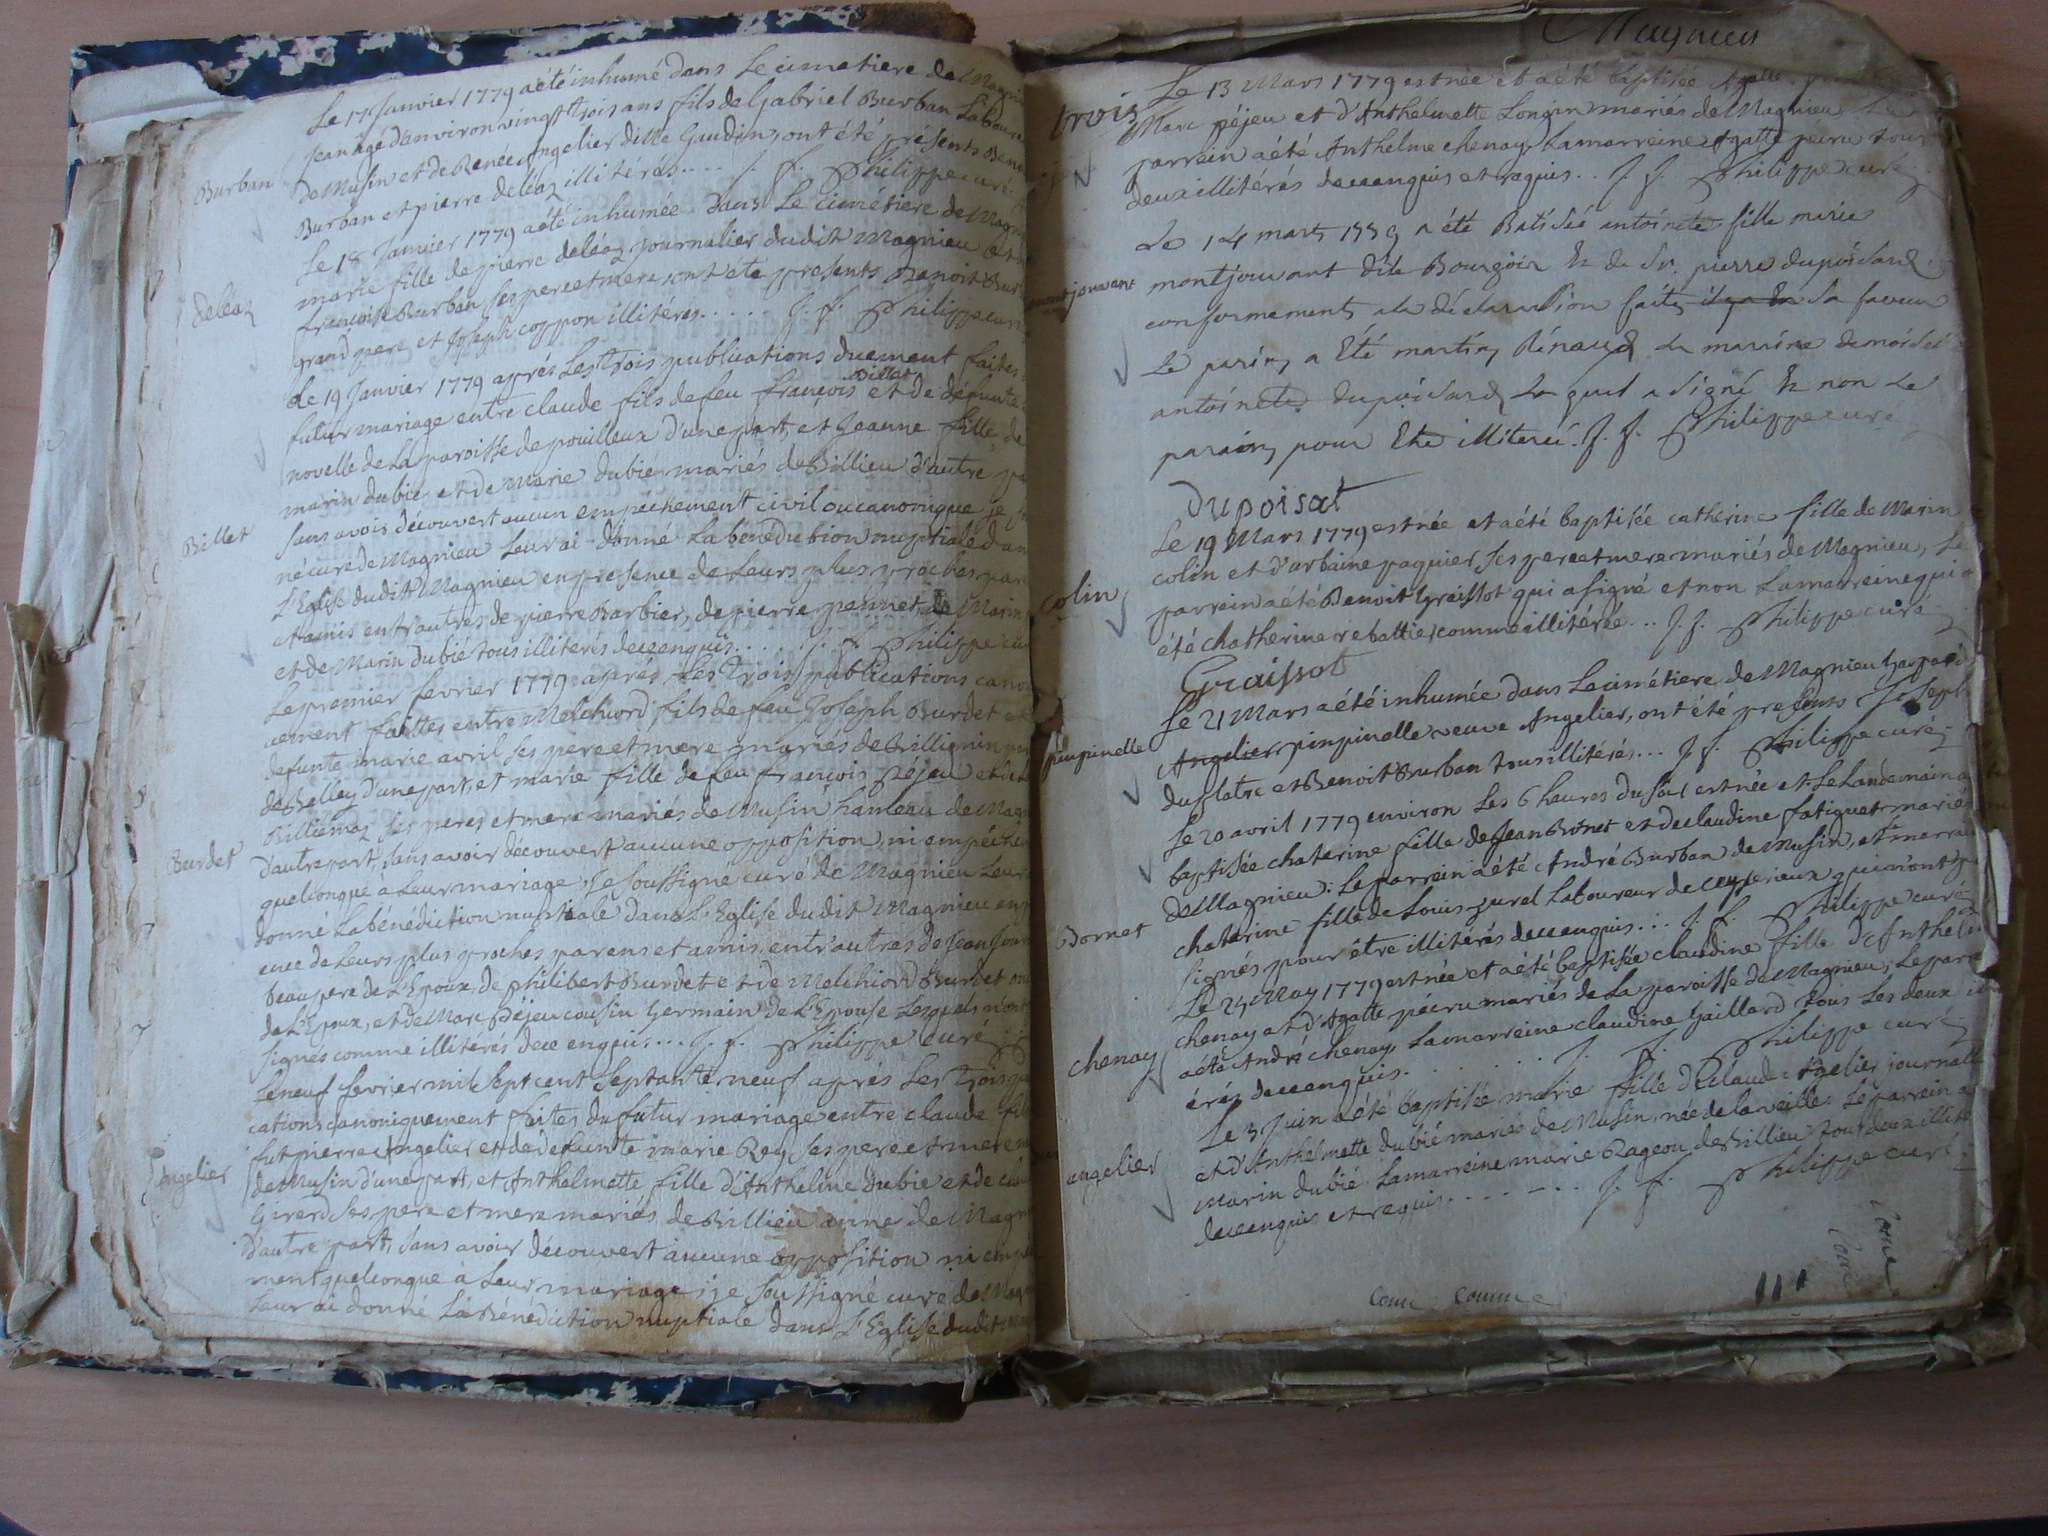 Le 17 Janvier 1779 a été inhumé dans Le cimetiere de Magni
jean âgé d'anviron vingt trois ans fils de Gabriel Burban Laboure
Burban
de Musin et de Renée Angelier dille Gaudin, ont été présents Bene
Burban et pierre deléaz illitérés.... J. f. Philippe curé
Le 18 Janvier 1779 a été inhumée dans Le cimétiere de Magni
marie fille de pierre deléaz journalier dudit Magnieu et de
deléaz
françoise Burban ses pere et mere, ont été presents Benoit Bur
grand pere et Joseph coppon illitéres..... J. f. Philippe curé
Le 19 Janvier 1779 aprés Les trois publications duement faites
Billet
futur mariage entre claude fils de feu françois et de défunte
novelle de La paroisse de pouilleux d'une part, et Jeanne fille de
marin dubié et de Marie dubié mariés de Billieu d'autre pa
sans avoir découvert aucun empéchement civil ou canonique je
Billet
né curé de Magnieu Leur ai donné La bénédiction nuptiale dan
L'Eglise dudit Magnieu en presence de Leurs plus proches par
et amis entr'autres de pierre Barbier, de pierre pennet, de Marin
et de Marin dubié tous illitérés de ce enquis..... J. f. Philippe cu
Le premier fevrier 1779 aprés Les trois publications cano
uement faittes entre Melchiord fils de feu Joseph Burdet et
defunte marie avril ses pere et mere mariés de Brillignin par
de Belley d'une part, et marie fille de feu françois péjeu et de
Billiémaz ses pere et mere mariés de Musin hameau de Mag
Burdet
d'autre part, sans avoir decouvert aucune opposition, ni empéche
quelconque à Leur mariage, Je soussigné curé de Magnieu Leur
donné La bénédiction nuptiale dans L'Eglise dudit Magnieu en p
ence de Leurs plus proches parens et amis, entr'autres de Jean Jour
beau pere de L'Epoux, de philibert Burdet et de Melchiord Burdet on
de L'Epoux, et de Marc péjeu cousin Germain de L'Epouse Lesquels n'ont
signés comme illiterés de ce enquis... J. f. Philippe curé
Le neuf fevrier mil sept cent septante neuf aprés Les trois pu
cations canoniquement faites du futur mariage entre claude fil
fut pierre Angelier et de defunte marie Rey ses pere et mere m
Angelier
de Musin d'une part, et Anthelmette fille d'Anthelme dubié et de clau
Girerd ses pere et mere mariés de Billieu anne de Magn
d'autre part, sans avoir découvert aucune opposition ni empe
ment quelconque à Leur mariage, je soussigné curé de Mag
Leur ai donné La Bénédiction nuptiale dans L'Eglise dudit
Magnieu
Le 13 Mars 1779 est née et a été baptisée Agatte
trois
Marc péjeu et d'Anthelmette Longin mariés de Magnieu, Le
parrein a été Anthelme chenay, La marreine Agatte pecru tous
deux illitérés de ce enquis et requis.. J. f. Philippe curé
Le 14 mart 1779 a été Batisée antoinete fille marie
montjouvant
montjouvant dite Bourgois Et de Sr. pierre dupoisard
conformements a la déclaration faite il y a En sa faveur
Le parin a Eté martin Rénaud La marrine demoisel
antoinete dupoisard Le quel a signé Et non Le
parain pour Etre illiteré. J. f. Philippe curé
Dupoisat
Le 19 Mars 1779 est née et a été baptisée catherine fille de Marin
colin
colin et d'urbaine paquier ses pere et mere mariés de Magnieu, Le
parrein a été Benoit Graissot qui a signé et non La marreine qui a
été chatherine rebattier comme illitérée... J. f. Philippe curé
Graissot
Le 21 Mars a été inhumée dans Le cimétiere de Magnieu
pinpinelle
Angelier pinpinelle veuve Angelier, ont été presents Joseph
duflatre et Benoit Burban tous illitérés... J. f. Philippe curé
Le 20 avril 1779 environ Les 6 heures du soir est née et Le Landemain a
baptisée chaterine fille de Jean Bornet et de claudine fatiguet mariés
de Magnieu: Le parrein a été André Burban de Musin, et marrai
Bornet
chaterine fille de Louis gurel Laboureur de ceyzerieux qui n'ont p
signés pour être illitérés de ce enquis... J. f. Philippe curé
Le 24 May 1779 est née et a été baptisée claudine fille d'Anthelm
chenay
chenay et d'Agatte pécru mariés de La paroisse de Magnieu, Le parr
a été André chenay, La marreine claudine Gaillard tous Les deux i
érés de ce enquis....... J. f. Philippe curé
Le 3 Juin a été baptisée marie fille de claude Angelier journali
angelier
et d'Anthelmette dubié mariés de Musin, née de la veille, Le parrein a
Marin dubié La marreine marie Rageon de Billieu tous deux illite
de ce enquis et requis....... J. f. Philippe curé
Come
Come
Come comme